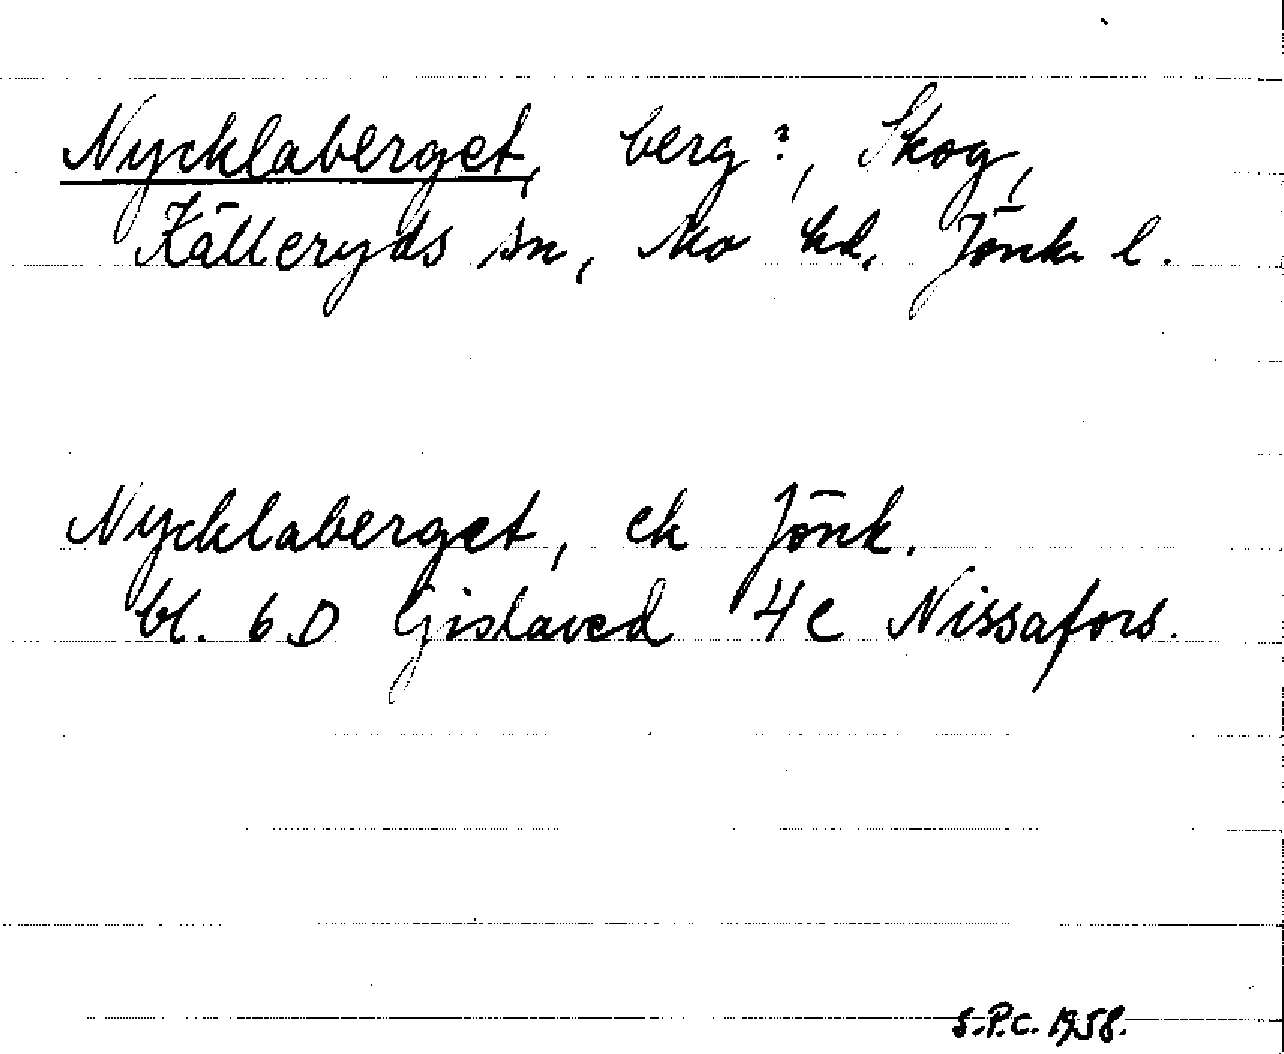 Nycklaberget, berg?, Skog,
Källeryds sn, Mo hd. Jönk. l.
Nycklaberget, ek Jönk.
bl. 6D Gislaved 4c Nissafors.
S.P.C. 1958.